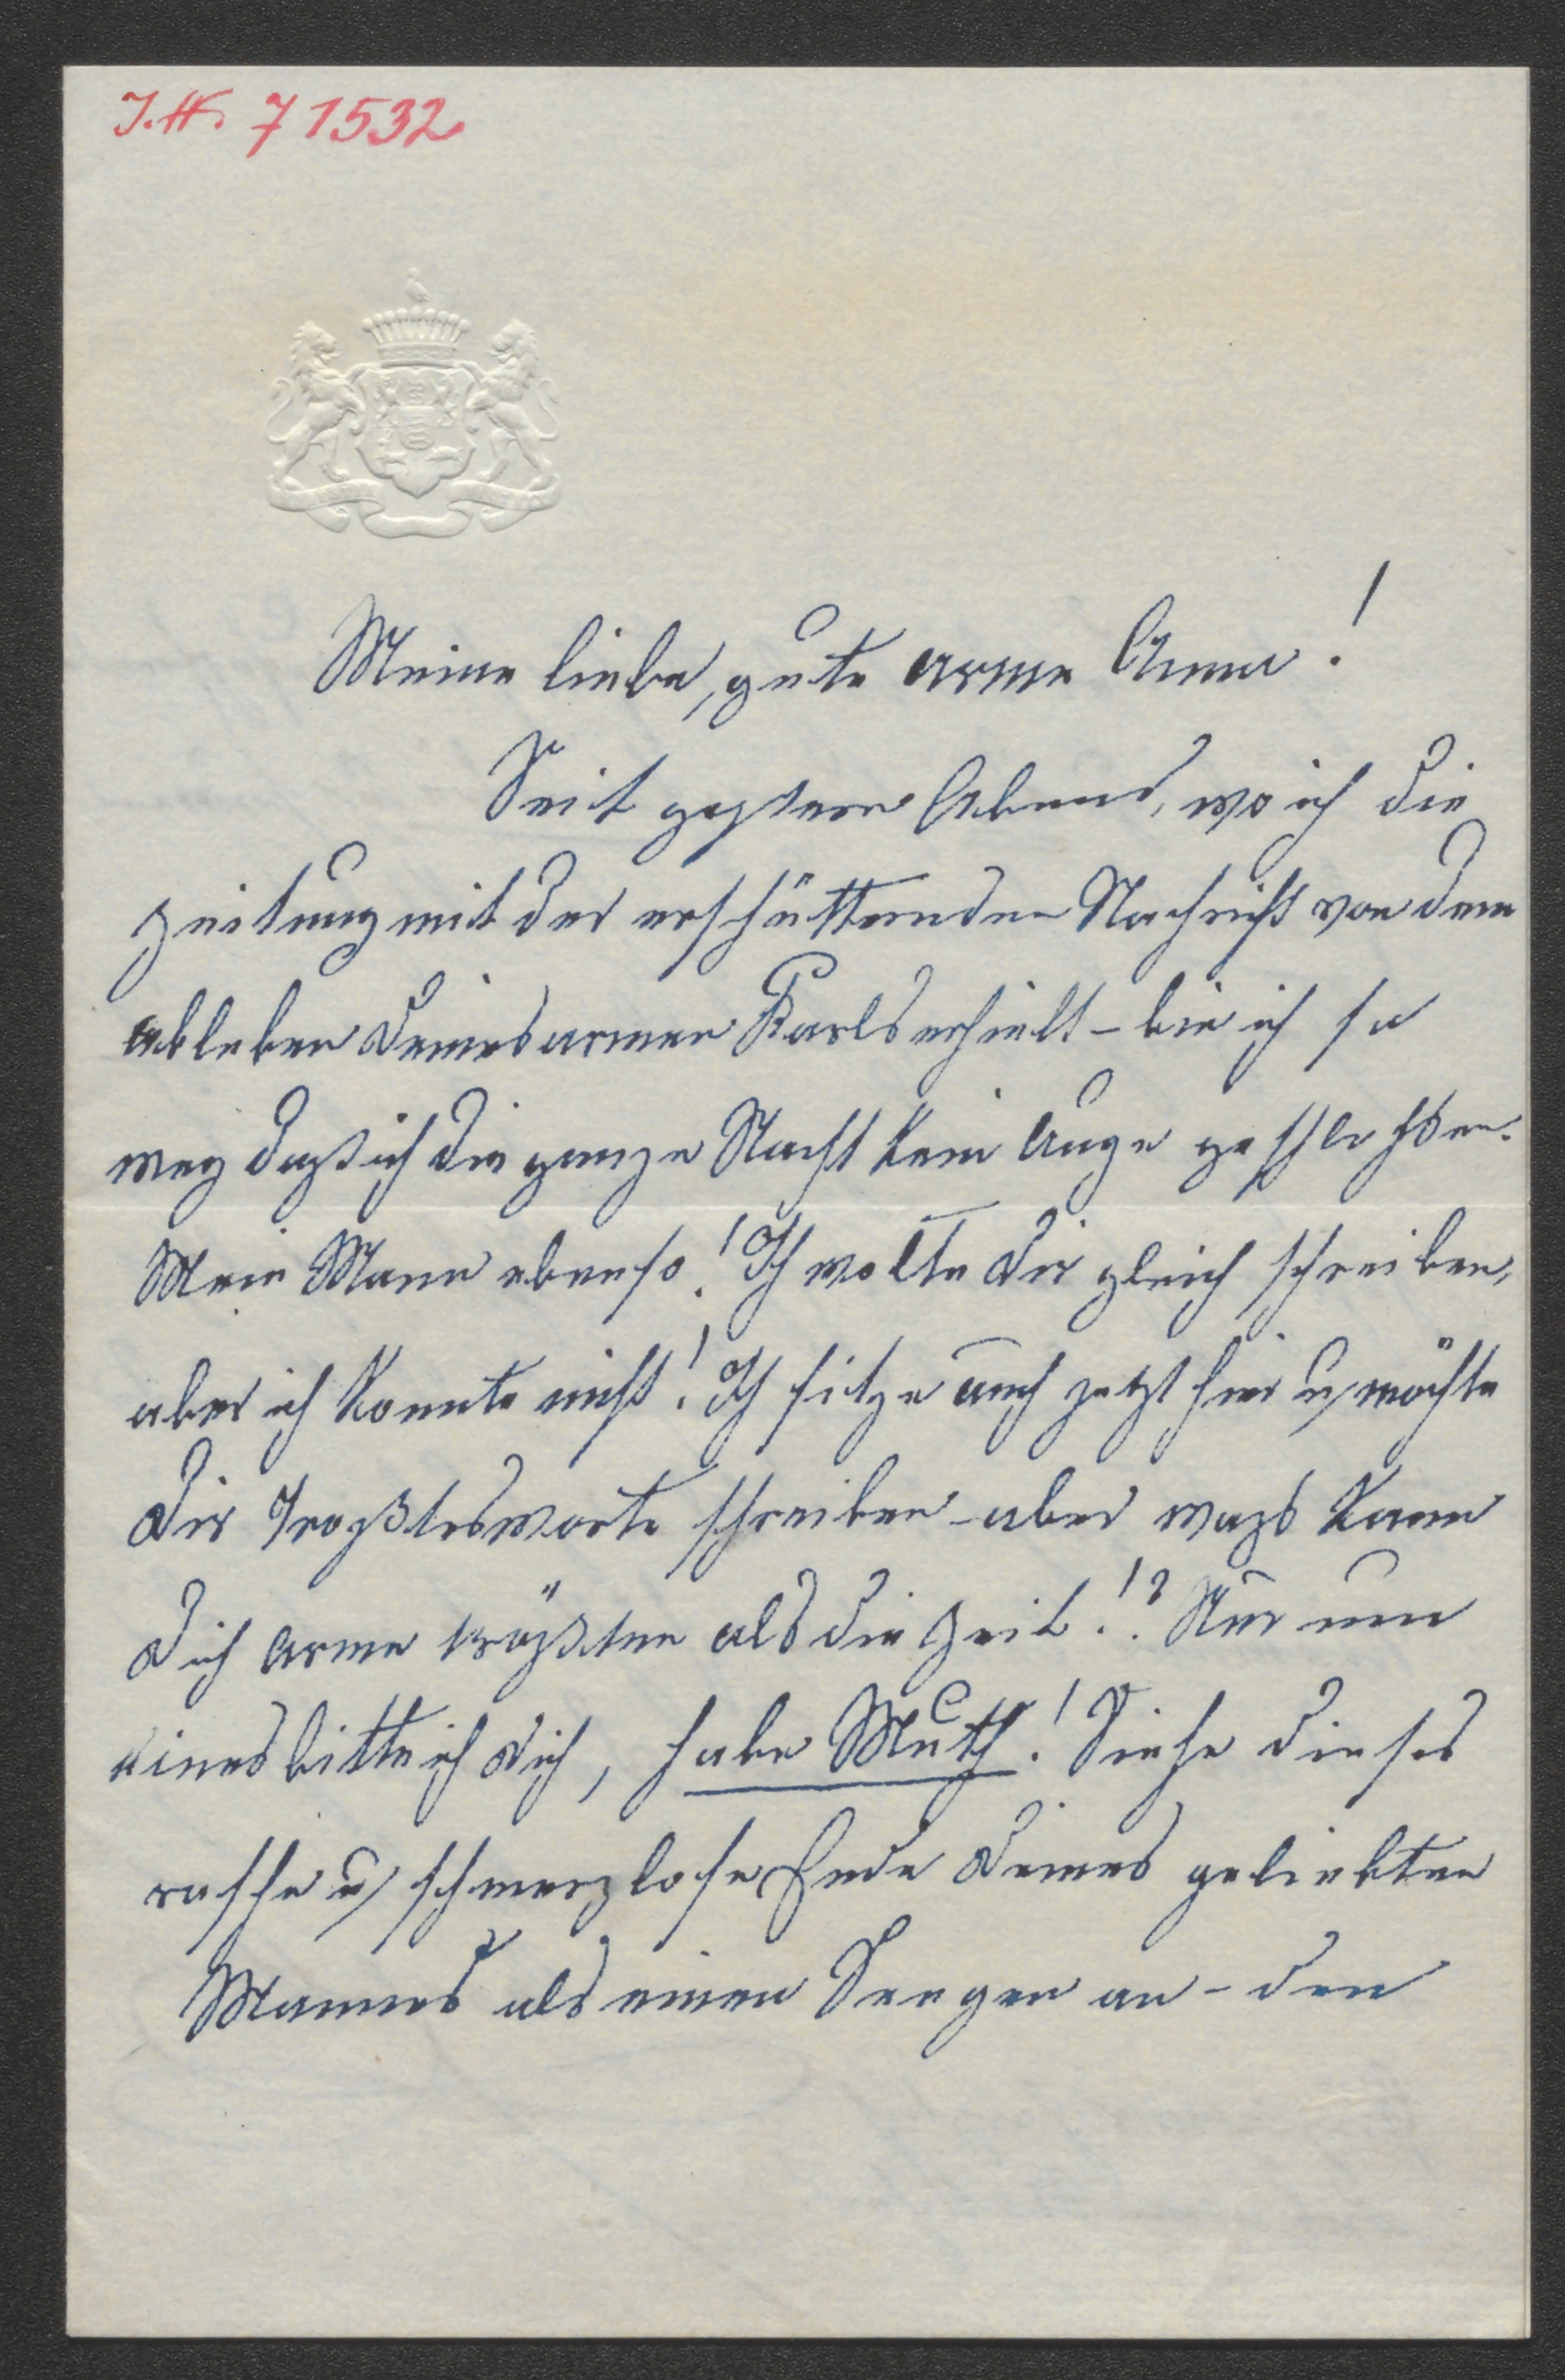 J.N. 71532
Meine liebe, gute arme Anna!
Seit gestern Abend, wo ich die
Zeitung mit der erschütternden Nachricht von dem
Ableben Deines armen Karls erhielt – bin ich so
weg daß ich die ganze Nacht kein Auge geschloßen.
Mein Mann ebenso! Ich wollte Dir gleich schreiben,
aber ich konnte nicht! Ich sitze auch jetzt hier u. möchte
Dir Trostesworte schreiben – aber was kann
Dich Arme trösten als die Zeit!? Nur um
eines bitte ich Dich, habe Muth! Siehe dieses
rasche u. schmerzlose Ende Deines geliebten
Mannes als einen Seegen an – den